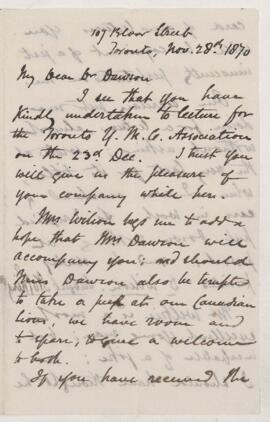 107 Bloor Street
Toronto, Nov. 28th 1870
My Dear Dr Dawson
I see that you have
kindly undertaken to lecture for
the Toronto Y. M. C. Association
on the 23rd Dec. I trust you
will give us the pleasure of
your company while her.
Mrs Wilson begs me to add a
hope that Mrs Dawson will
accompany you; and should
Miss Dawson also be tempted
to take a peep at our Canadian
lions, we have room and
to spare, to give a welcome
to both.
If you have received the